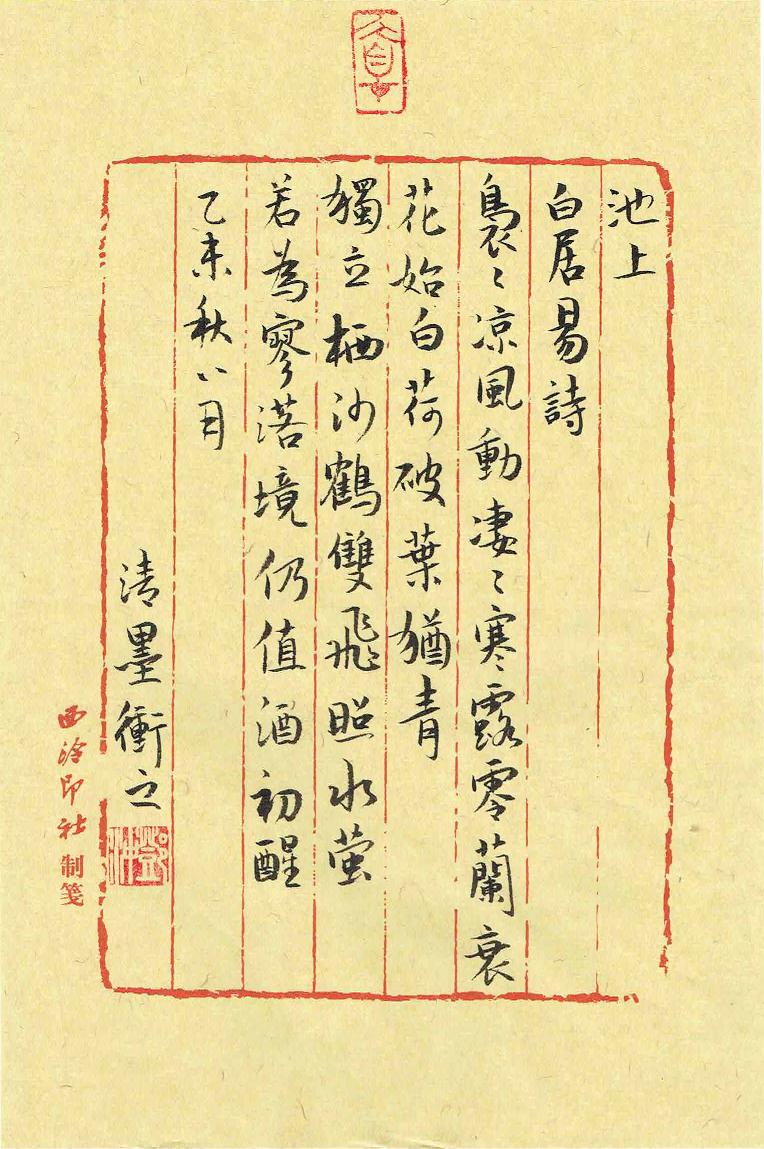 池上
白居易詩
裊裊凉風動凄凄寒露零蘭衰
花始白荷破葉猶青
獨立栖沙鶴雙飛照水萤
若為寥落境仍值酒初醒
乙未秋八月
清墨衝之
西泠印社制箋